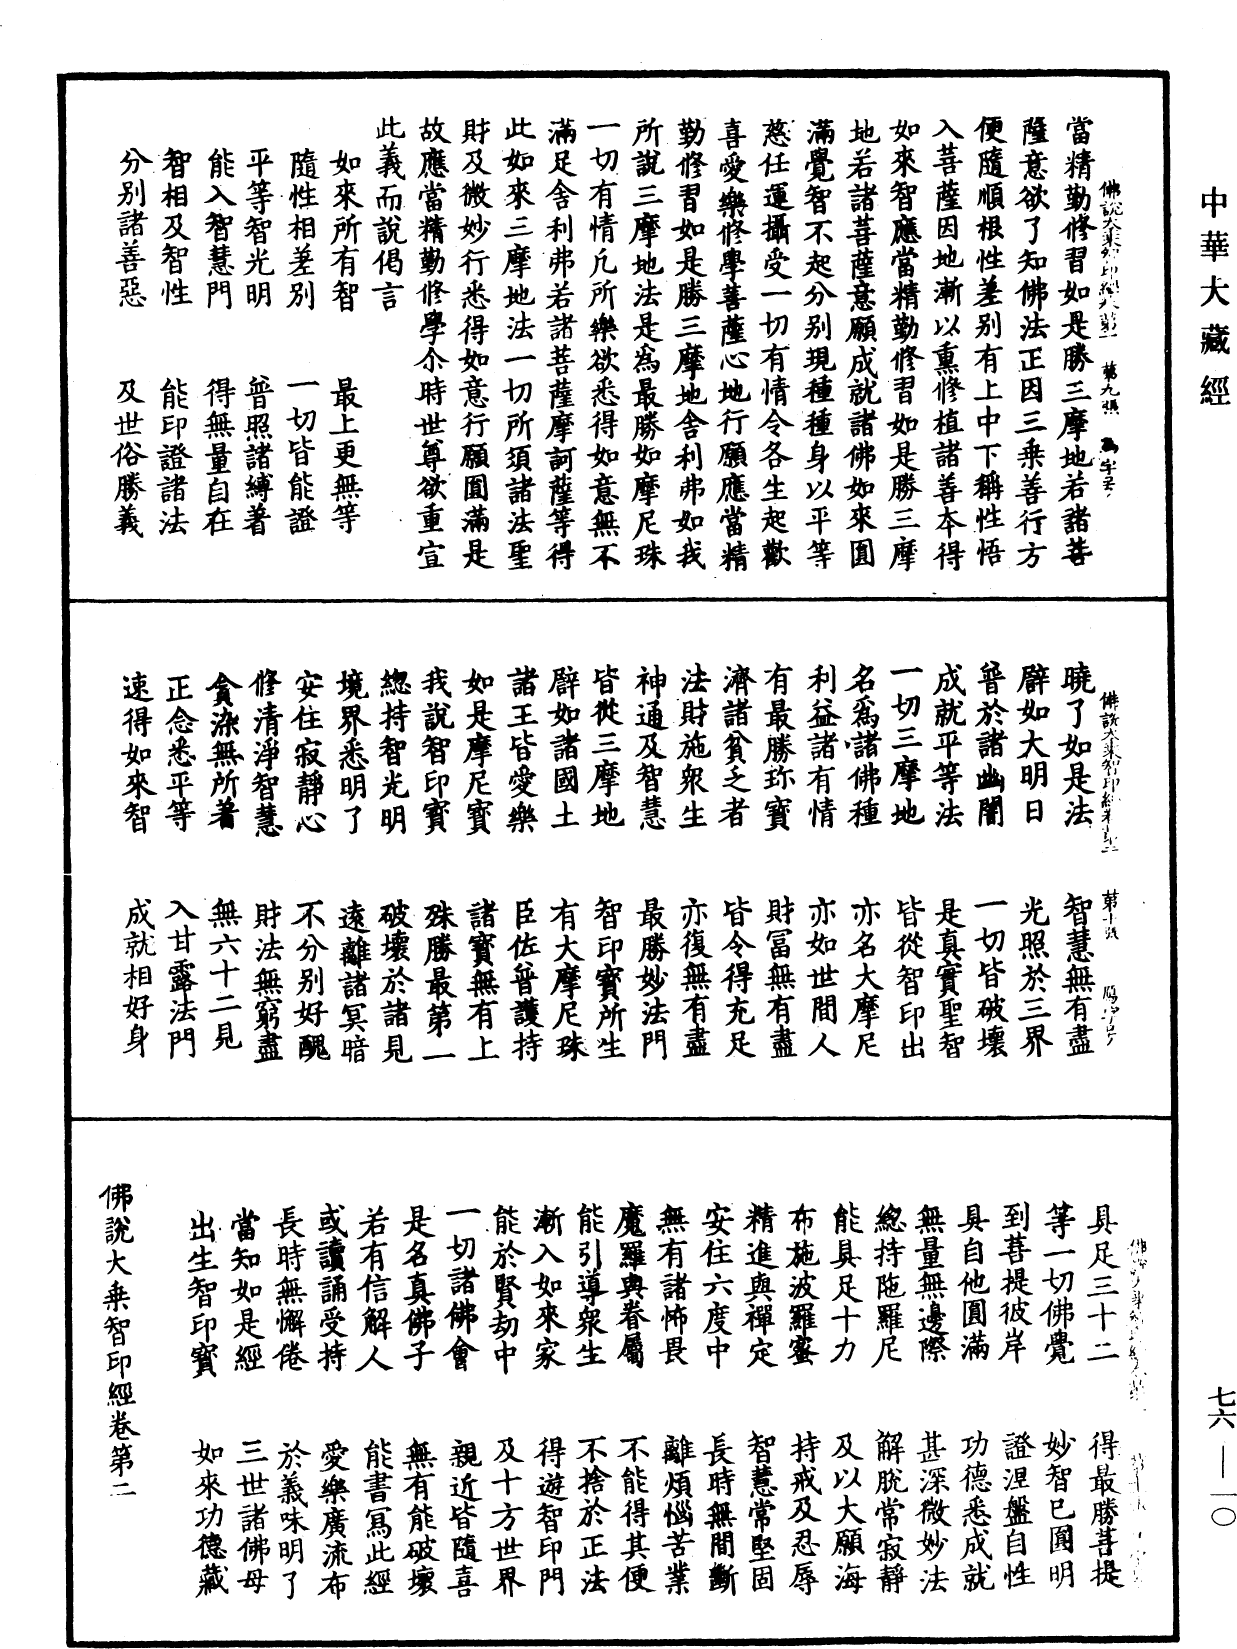 中華大藏經
當精勤修習如是勝三摩地若諸菩
薩意欲了知佛法正因三乘善行方
便隨順根性差別有上中下稱性悟
入菩薩因地漸以熏修植諸善本得
如來智應當精勤修習如是勝三摩
地若諸菩薩意願成就諸佛如來圓
滿覺智不起分別現種種身以平等
慈任運攝受一切有情令各生起歡
喜愛樂修學菩薩心地行願應當精
勤修習如是勝三摩地舍利弗如我
所說三摩地法是為最勝如摩尼珠
一切有情凡所樂欲悉得如意無不
滿足舍利弗若諸菩薩摩訶薩等得
此如來三摩地法一切所須諸法聖
財及微妙行悉得如意行願圓滿是
故應當精勤修學尒時世尊欲重宣
此義而說偈言
如來所有智　最上更無等
隨性相差別　一切皆能證
平等智光明　普照諸縛著
能入智慧門　得無量自在
智相及智性　能印證諸法
分別諸善惡　及世俗勝義
佛說大乘智印經卷第二
曉了如是法　智慧無有盡
譬如大明日　光照於三界
普於諸幽闇　一切皆破壞
成就平等法　是真實聖智
一切三摩地　皆從智印出
名為諸佛種　亦名大摩尼
利益諸有情　亦如世間人
有最勝珎寶　財冨無有盡
濟諸貧乏者　皆令得充足
法財施衆生　亦復無有盡
神通及智慧　最勝妙法門
皆從三摩地　智印寶所生
譬如諸國土　有大摩尼珠
諸王皆愛樂　臣佐普護持
如是摩尼寶　諸寶無有上
我說智印寶　殊勝最第一
緫持智光明　破壞於諸見
境界悉明了　遠離諸冥暗
安住寂靜心　不分別好醜
修清淨智慧　財法無窮盡
貪染無所著　無六十二見
正念悉平等　入甘露法門
速得如來智　成就相好身
具足三十二　得最勝菩提
等一切佛覺　妙智已圓明
到菩提彼岸　證涅盤自性
具自他圓滿　功德悉成就
無量無邊際　甚深微妙法
緫持陁羅尼　解脫常寂靜
能具足十力　及以大願海
布施波羅蜜　持戒及忍辱
精進與禪定　智慧常堅固
安住六度中　長時無間斷
無有諸怖畏　離煩惱苦業
魔羅與眷屬　不能得其便
能引導衆生　不捨於正法
漸入如來家　得遊智印門
能於賢劫中　及十方世界
一切諸佛會　親近皆隨喜
是名真佛子　無有能破壞
若有信解人　能書冩此經
或讀誦受持　愛樂廣流布
長時無懈倦　於義味明了
當知如是經　三世諸佛母
出生智印寶　如來功德藏
佛說大乘智印經卷第二
七六—一〇